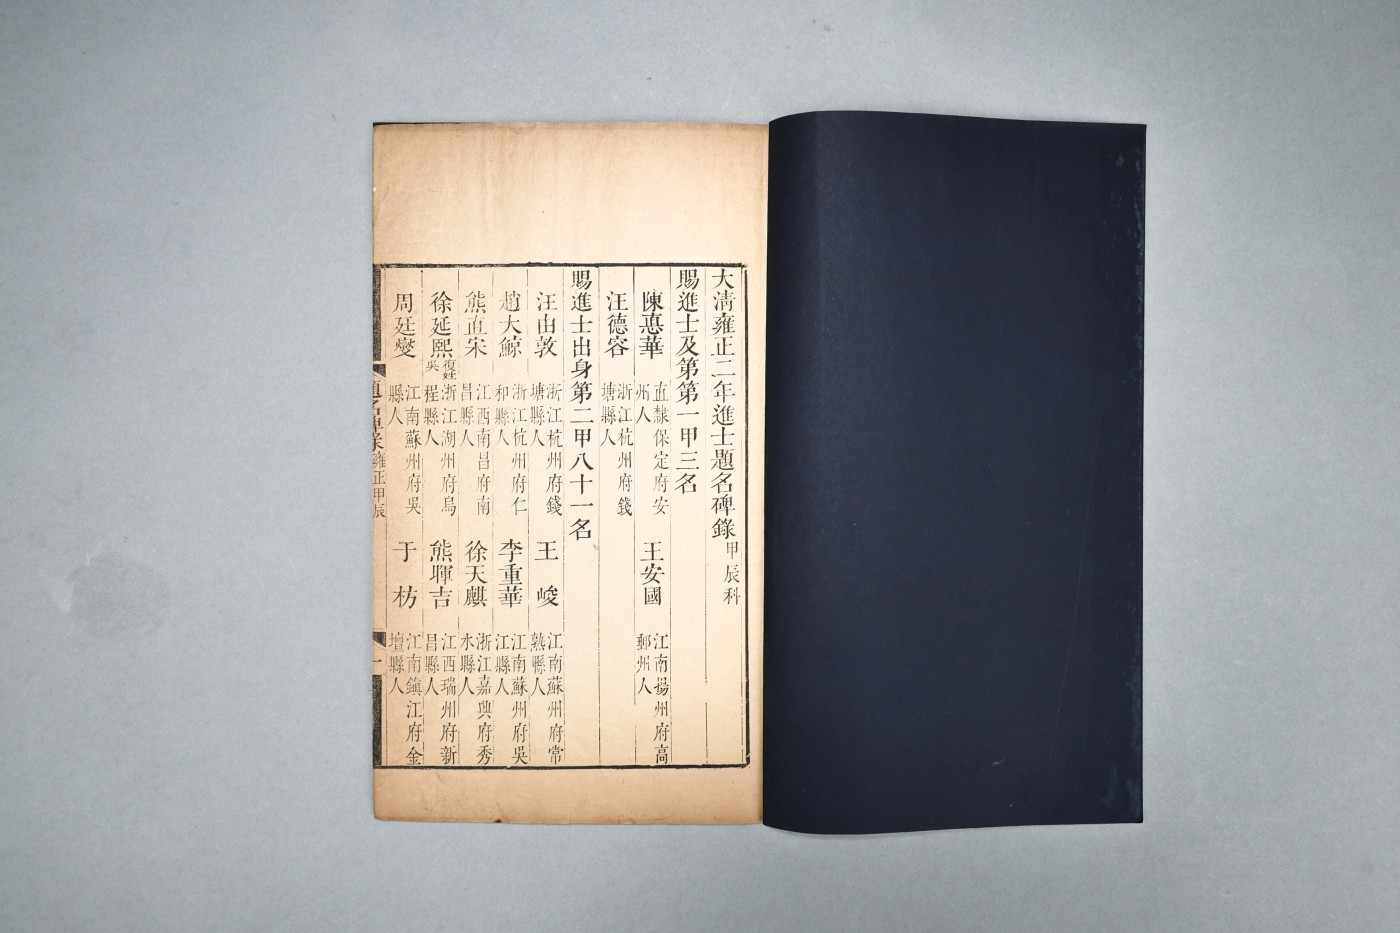 大清雍正二年進士題名碑錄甲辰科
賜進士及第第一甲三名
陳悳華 直隸保定府安州人 王安國 江南揚州府高郵州人
汪德容 浙江杭州府錢塘縣人
賜進士出身第二甲八十一名
汪由敦 浙江杭州府錢塘縣人 王峻 江南蘇州府常熟縣人
趙大鯨 浙江杭州府仁和縣人 李重華 江南蘇州府吳江縣人
熊直宋 江西南昌府南昌縣人 徐天麒 浙江嘉興府秀水縣人
徐延熙 復姓吳 浙江湖州府烏程縣人 熊暉吉 江西瑞州府新昌縣人
周廷燮 江南蘇州府吳縣人 于枋 江南鎮江府金壇縣人
題名碑錄 雍正甲辰 一